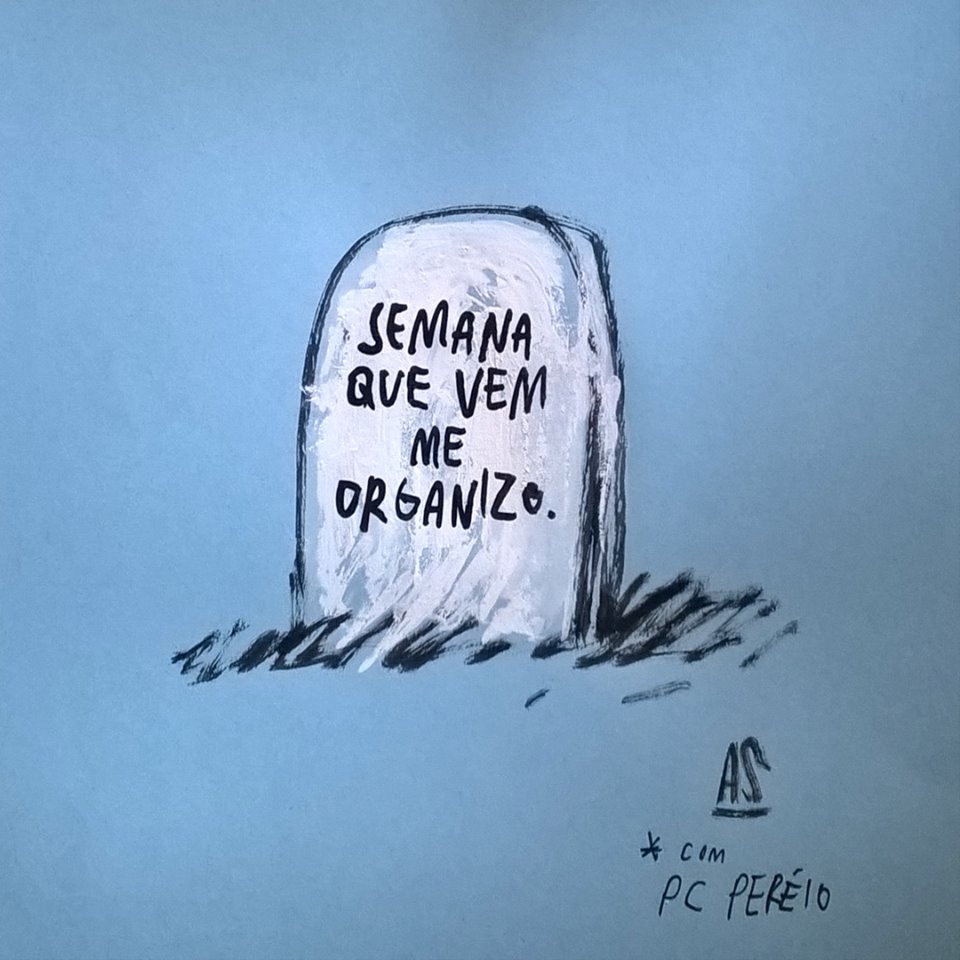 SEMANA
QUE VEM
ME
ORGANIZO.
AS
* COM
PC PERÉIO